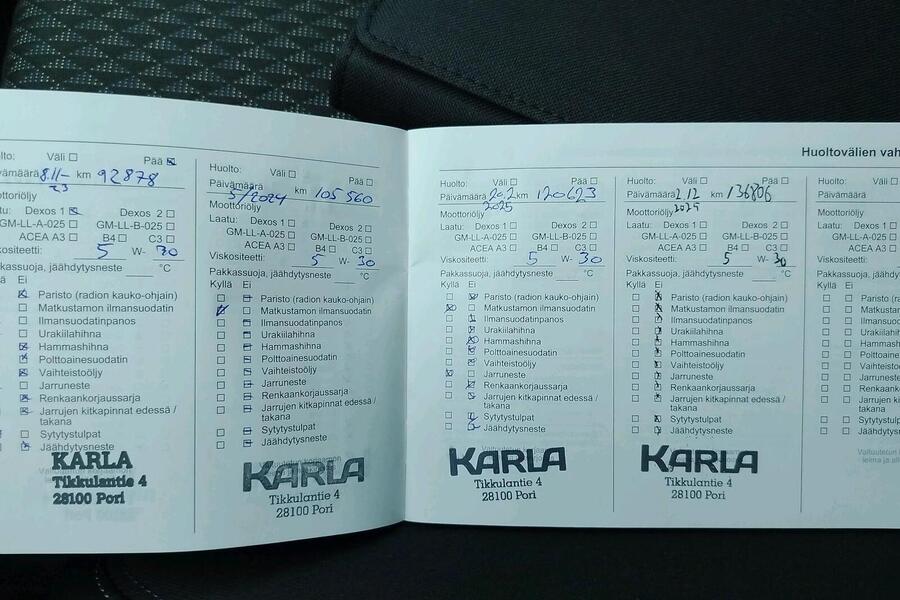 lto: Väli Pää
vämäärä 8.11- km 92878
23
oottoriöljy
tu: Dexos 1 Dexos 2
GM-LL-A-025 GM-LL-B-025
ACEA A3 B4 C3
skositeetti: 5 W- 30
kkassuoja, jäähdytysneste °C
ä Ei
Paristo (radion kauko-ohjain)
Matkustamon ilmansuodatin
Ilmansuodatinpanos
Urakiilahihna
Hammashihna
Polttoainesuodatin
Vaihteistoöljy
Jarruneste
Renkaankorjaussarja
Jarrujen kitkapinnat edessä /
takana
Sytytystulpat
Jäähdytysneste
KARLA
Tikkulantie 4
28100 Pori
Huolto: Väli Pää
Päivämäärä 5/2024 km 105 560
Moottoriöljy
Laatu: Dexos 1 Dexos 2
GM-LL-A-025 GM-LL-B-025
ACEA A3 B4 C3
Viskositeetti: 5 W- 30
Pakkassuoja, jäähdytysneste °C
Kyllä Ei
Paristo (radion kauko-ohjain)
Matkustamon ilmansuodatin
Ilmansuodatinpanos
Urakiilahihna
Hammashihna
Polttoainesuodatin
Vaihteistoöljy
Jarruneste
Renkaankorjaussarja
Jarrujen kitkapinnat edessä /
takana
Sytytystulpat
Jäähdytysneste
KARLA
Tikkulantie 4
28100 Pori
Huoltovälien vah
Huolto: Väli Pää
Päivämäärä 20.2 km 120623
2025
Moottoriöljy
Laatu: Dexos 1 Dexos 2
GM-LL-A-025 GM-LL-B-025
ACEA A3 B4 C3
Viskositeetti: 5 W- 30
Pakkassuoja, jäähdytysneste °C
Kyllä Ei
Paristo (radion kauko-ohjain)
Matkustamon ilmansuodatin
Ilmansuodatinpanos
Urakiilahihna
Hammashihna
Polttoainesuodatin
Vaihteistoöljy
Jarruneste
Renkaankorjaussarja
Jarrujen kitkapinnat edessä /
takana
Sytytystulpat
Jäähdytysneste
KARLA
Tikkulantie 4
28100 Pori
Huolto: Väli Pää
Päivämäärä 2.12 km 136806
2025
Moottoriöljy
Laatu: Dexos 1 Dexos 2
GM-LL-A-025 GM-LL-B-025
ACEA A3 B4 C3
Viskositeetti: 5 W- 30
Pakkassuoja, jäähdytysneste °C
Kyllä Ei
Paristo (radion kauko-ohjain)
Matkustamon ilmansuodatin
Ilmansuodatinpanos
Urakiilahihna
Hammashihna
Polttoainesuodatin
Vaihteistoöljy
Jarruneste
Renkaankorjaussarja
Jarrujen kitkapinnat edessä /
takana
Sytytystulpat
Jäähdytysneste
KARLA
Tikkulantie 4
28100 Pori
Huolto: Väli
Päivämäärä
Moottoriöljy
Laatu: Dexos 1
GM-LL-A-025
ACEA A3
Viskositeetti:
Pakkassuoja, jäähdy
Kyllä Ei
Paristo (rad
Matkustam
Ilmansuoda
Urakiilahihn
Hammashih
Polttoaines
Vaihteistoölj
Jarruneste
Renkaankor
Jarrujen kitk
takana
Sytytystulpa
Jäähdytysne
Valtuutetun
leima ja al